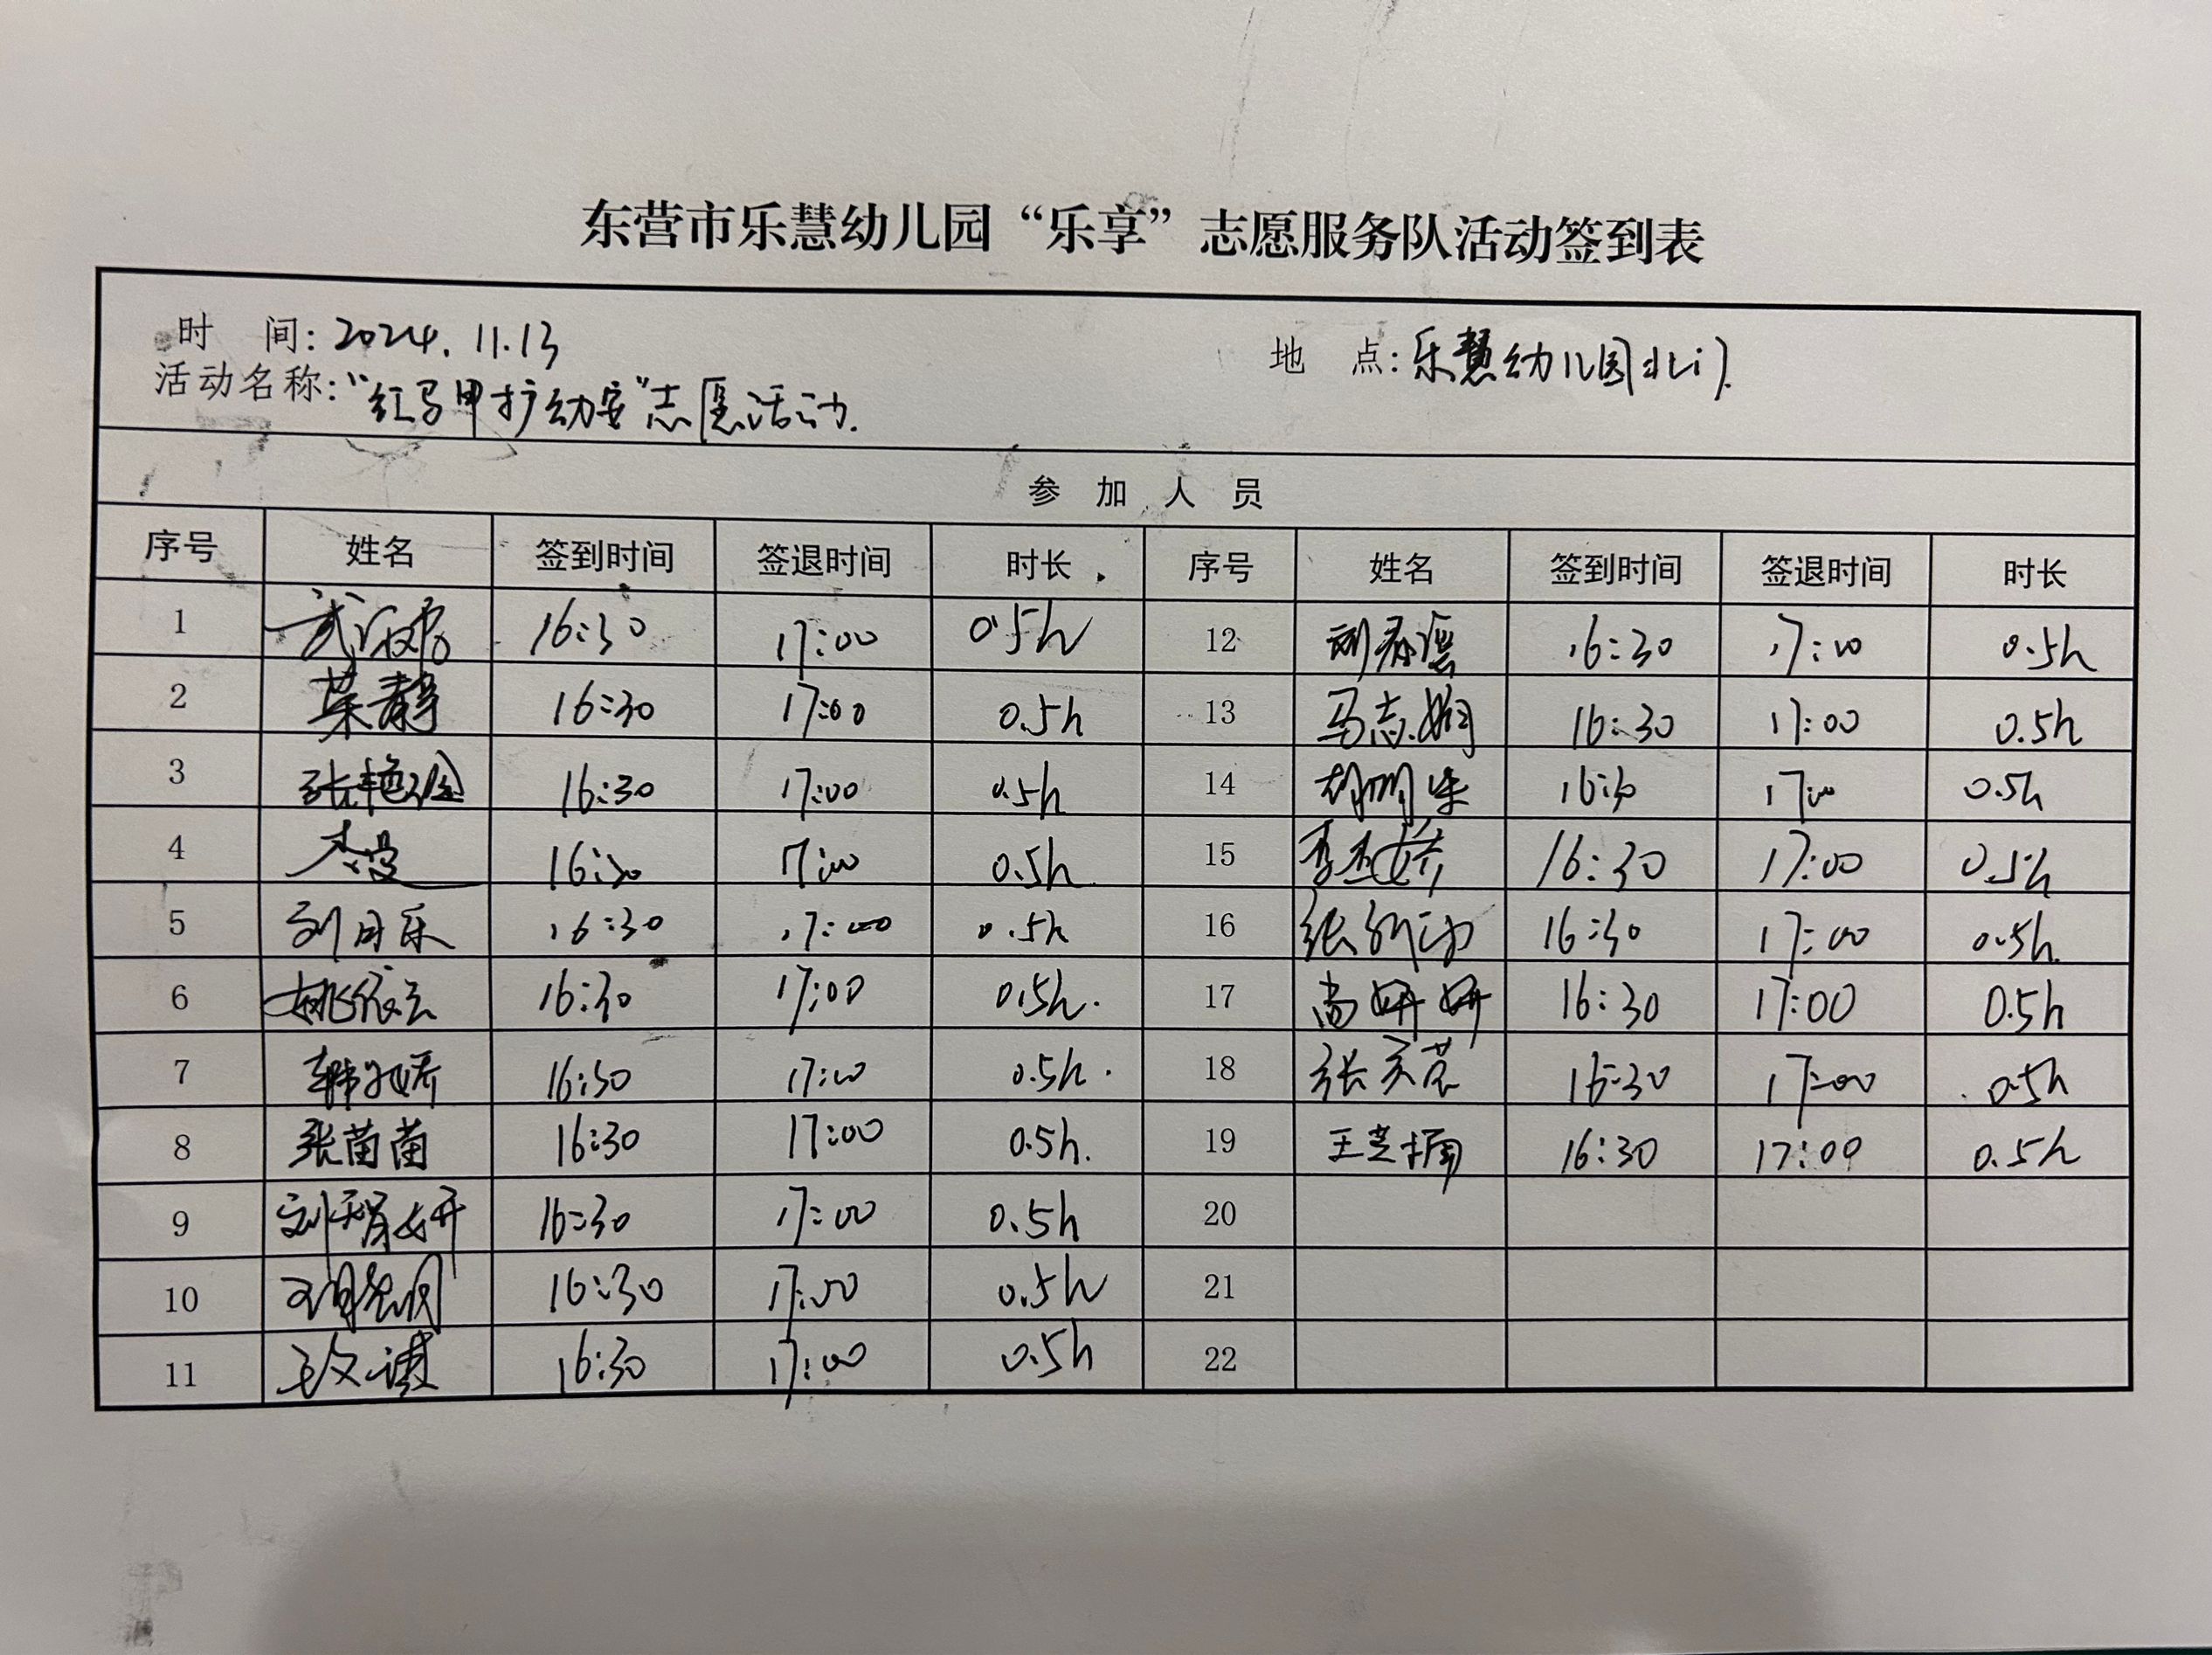 东营市乐慧幼儿园“乐享”志愿服务队活动签到表
时 间：2024.11.13 地 点：乐慧幼儿园北门
活动名称：“红马甲护幼安”志愿活动.
参 加 人 员
序号 姓名 签到时间 签退时间 时长 序号 姓名 签到时间 签退时间 时长
1 16:30 17:00 0.5h 12 16:30 17:00 0.5h
2 荣静 16:30 17:00 0.5h 13 马志娴 16:30 17:00 0.5h
3 16:30 17:00 0.5h 14 16:30 17:00 0.5h
4 16:30 17:00 0.5h. 15 16:30 17:00 0.5h
5 刘月乐 16:30 17:00 0.5h 16 16:30 17:00 0.5h.
6 姚依云 16:30 17:00 0.5h. 17 尚妍妍 16:30 17:00 0.5h
7 16:30 17:00 0.5h. 18 16:30 17:00 0.5h
8 张苗苗 16:30 17:00 0.5h. 19 王芝楠 16:30 17:00 0.5h
9 16:30 17:00 0.5h 20
10 16:30 17:00 0.5h 21
11 16:30 17:00 0.5h 22